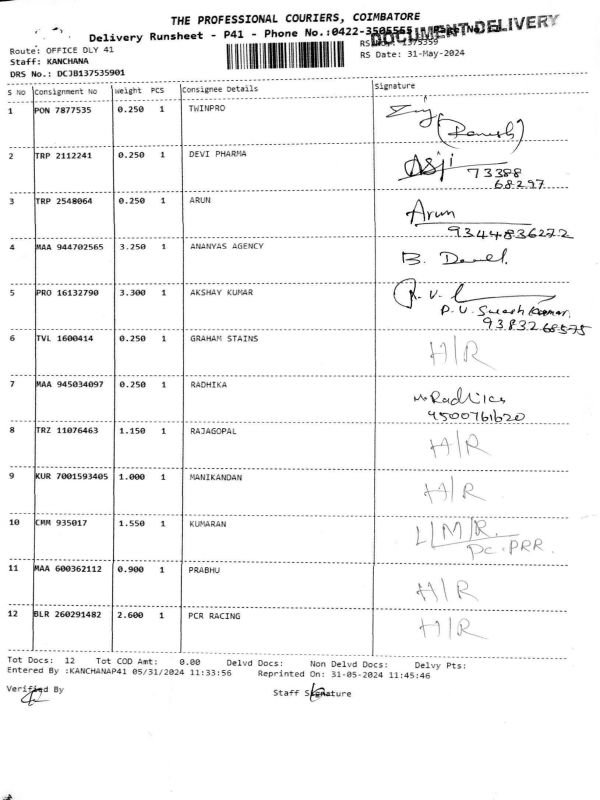 THE PROFESSIONAL COURIERS, COIMBATORE
Delivery Runsheet - P41 - Phone No.:0422-3505565
DOCUMENT DELIVERY
Route: OFFICE DLY 41 RS No.: 1375359
Staff: KANCHANA RS Date: 31-May-2024
DRS No.: DCJB137535901
S No Consignment No Weight PCS Consignee Details Signature
1 PON 7877535 0.250 1 TWINPRO
(Ramesh)
2 TRP 2112241 0.250 1 DEVI PHARMA
73388
68297
3 TRP 2548064 0.250 1 ARUN Arun
9344836272
4 MAA 944702565 3.250 1 ANANYAS AGENCY B.
5 PRO 16132790 3.300 1 AKSHAY KUMAR R.V.
P.V. Suresh Kumar.
9383268575
6 TVL 1600414 0.250 1 GRAHAM STAINS H/R
7 MAA 945034097 0.250 1 RADHIKA Radhika
9500761620
8 TRZ 11076463 1.150 1 RAJAGOPAL H/R
9 KUR 7001593405 1.000 1 MANIKANDAN H/R
10 CMM 935017 1.550 1 KUMARAN L/M/R.
PC.PRR.
11 MAA 600362112 0.900 1 PRABHU H/R
12 BLR 260291482 2.600 1 PCR RACING H/R
Tot Docs: 12 Tot COD Amt: 0.00 Delvd Docs: Non Delvd Docs: Delvy Pts:
Entered By :KANCHANAP41 05/31/2024 11:33:56 Reprinted On: 31-05-2024 11:45:46
Verified By Staff Signature